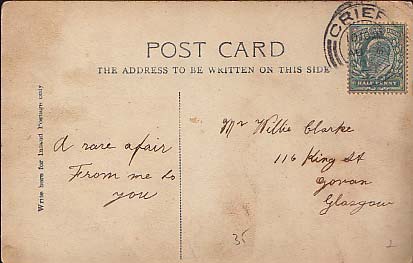 CRIEF
POST CARD
THE ADDRESS TO BE WRITTEN ON THIS SIDE
HALFPENNY
Write here for Inland Postage only
A rare afair
From me to
you
Mr Willie Clarke
116 King St
Govan
Glasgow
35
2